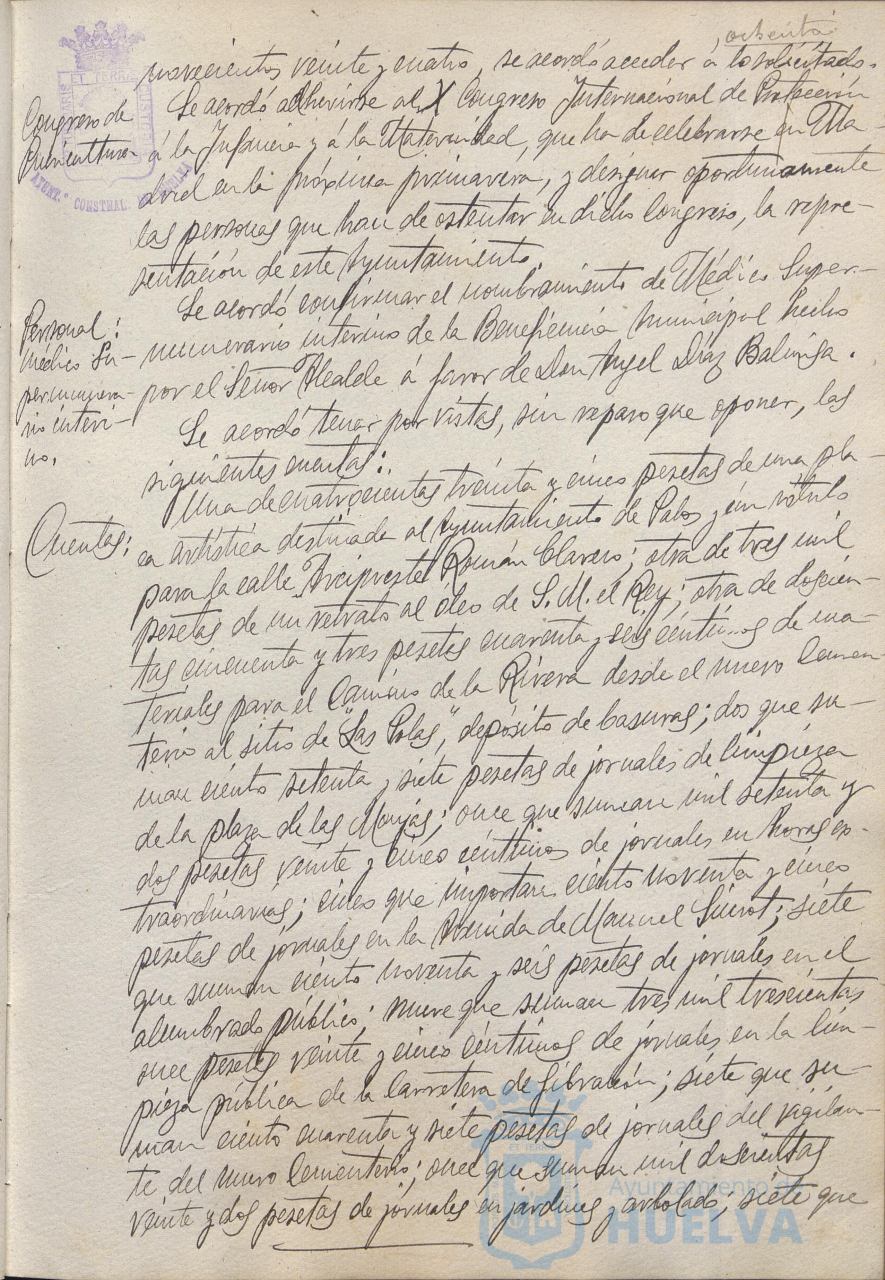 ochenta
novecientos veinte y cuatro, se acordó acceder á lo solicitado.
Congreso de
Puericultura
Se acordó adherirse al X Congreso Internacional de Protección
á la Infancia y á la Maternidad, que ha de celebrarse en Ma-
drid en la próxima primavera, y designar oportunamente
las personas que han de ostentar en dicho Congreso, la repre-
sentación de este Ayuntamiento.
Personal:
Médico Su-
pernumera-
rio interi-
no.
Se acordó confirmar el nombramiento de Médico Super-
numerario interino de la Beneficencia Municipal hecho
por el Señor Alcalde á favor de Don Angel Díaz Balmisa.
Se acordó tener por vistas, sin reparo que oponer, las
siguientes cuentas:
Cuentas:
Una de cuatrocientas treinta y cinco pesetas de una pla-
ca artística destinada al Ayuntamiento de Palos y un rótulo
para la calle "Arcipreste Román Clavero; otra de tres mil
pesetas de un retrato al óleo de S. M. el Rey; otra de doscien-
tas cincuenta y tres pesetas cuarenta y seis céntimos de ma-
teriales para el Camino de la Rivera desde el nuevo Cemen-
terio al sitio de "Las Polas", depósito de basuras; dos que su-
man ciento setenta y siete pesetas de jornales de limpieza
de la plaza de las Monjas; once que suman mil setenta y
dos pesetas veinte y cinco céntimos de jornales en horas ex-
traordinarias; cinco que importan ciento noventa y cinco
pesetas de jornales en la Avenida de Manuel Siurot; siete
que suman ciento noventa y seis pesetas de jornales en el
alumbrado público; nueve que suman tres mil trescientas
once pesetas veinte y cinco céntimos de jornales en la lim-
pieza pública de la Carretera de Gibraleón; siete que su-
man ciento cuarenta y siete pesetas de jornales del vigilan-
te del nuevo Cementerio; once que suman mil doscientas
veinte y dos pesetas de jornales en jardines y arbolado; siete que
Ayuntamiento de
HUELVA